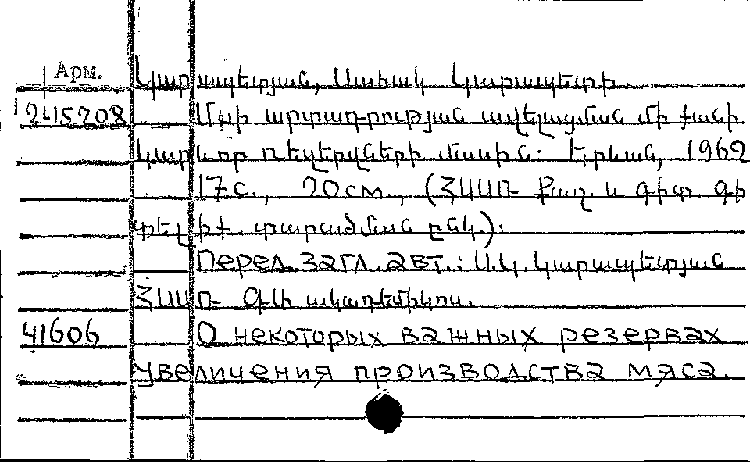 Арм. Կարապետյան, Սահակ Կարապետի
2-15208 Մսի արտադրության ավելացման մի քանի
կարևոր ռեզերվների մասին: Երևան, 1962
17с., 20см., (ՀՍՍՌ քաղ. և գիտ. գի
տելիք. տարածման ընկ.):
Перед. загл. авт.: Ս.Կ. Կարապետյան
ՀՍՍՌ ԳԱ ակադեմիկոս.
41606 О некоторых важных резервах
увеличения производства мяса.